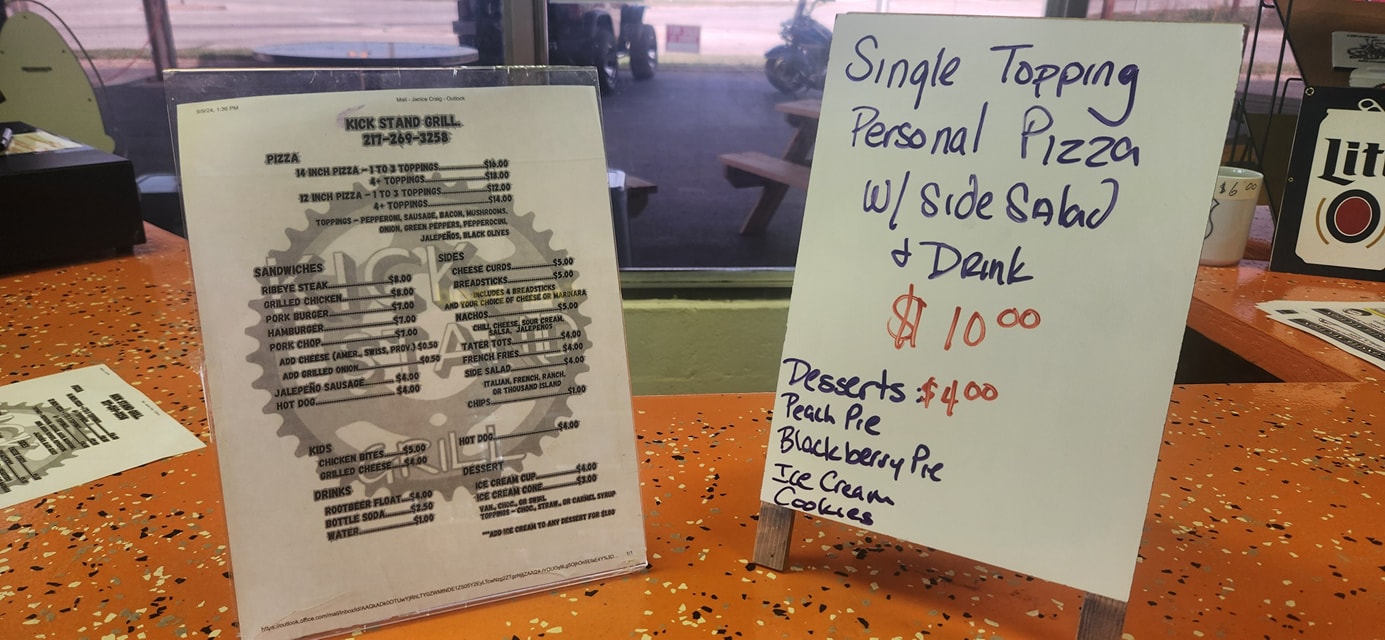 Mail - Janice Craig - Outlook
KICK STAND GRILL
217-269-3258
PIZZA
14 INCH PIZZA - 1 TO 3 TOPPINGS $16.00
4+ TOPPINGS $18.00
12 INCH PIZZA - 1 TO 3 TOPPINGS $12.00
4+ TOPPINGS $14.00
TOPPINGS - PEPPERONI, SAUSAGE, BACON, MUSHROOMS,
ONION, GREEN PEPPERS, PEPPEROCINI,
JALEPEÑOS, BLACK OLIVES
SANDWICHES
RIBEYE STEAK $8.00
GRILLED CHICKEN $8.00
PORK BURGER $7.00
HAMBURGER $7.00
PORK CHOP $7.00
ADD CHEESE (AMER., SWISS, PROV.) $0.50
ADD GRILLED ONION $0.50
JALEPEÑO SAUSAGE $4.00
HOT DOG $4.00
SIDES
CHEESE CURDS $5.00
BREADSTICKS $5.00
INCLUDES 4 BREADSTICKS
AND YOUR CHOICE OF CHEESE OR MARINARA
NACHOS $5.00
CHILI, CHEESE, SOUR CREAM,
SALSA, JALEPEÑOS
TATER TOTS $4.00
FRENCH FRIES $4.00
SIDE SALAD $4.00
ITALIAN, FRENCH, RANCH,
OR THOUSAND ISLAND
CHIPS $1.00
KIDS
CHICKEN BITES $5.00
GRILLED CHEESE $4.00
HOT DOG $4.00
DRINKS
ROOTBEER FLOAT $4.00
BOTTLE SODA $2.50
WATER $1.00
DESSERT
ICE CREAM CUP $4.00
ICE CREAM CONE $3.00
VAN., CHOC., OR SWIRL
TOPPINGS - CHOC., STRAW., OR CARMEL SYRUP
***ADD ICE CREAM TO ANY DESSERT FOR $1.00
1/1
KICK
STAND
GRILL
Single Topping
Personal Pizza
w/ Side Salad
& Drink
$10.00
Desserts: $4.00
Peach Pie
Blackberry Pie
Ice Cream
Cookies
$6.00
Lite